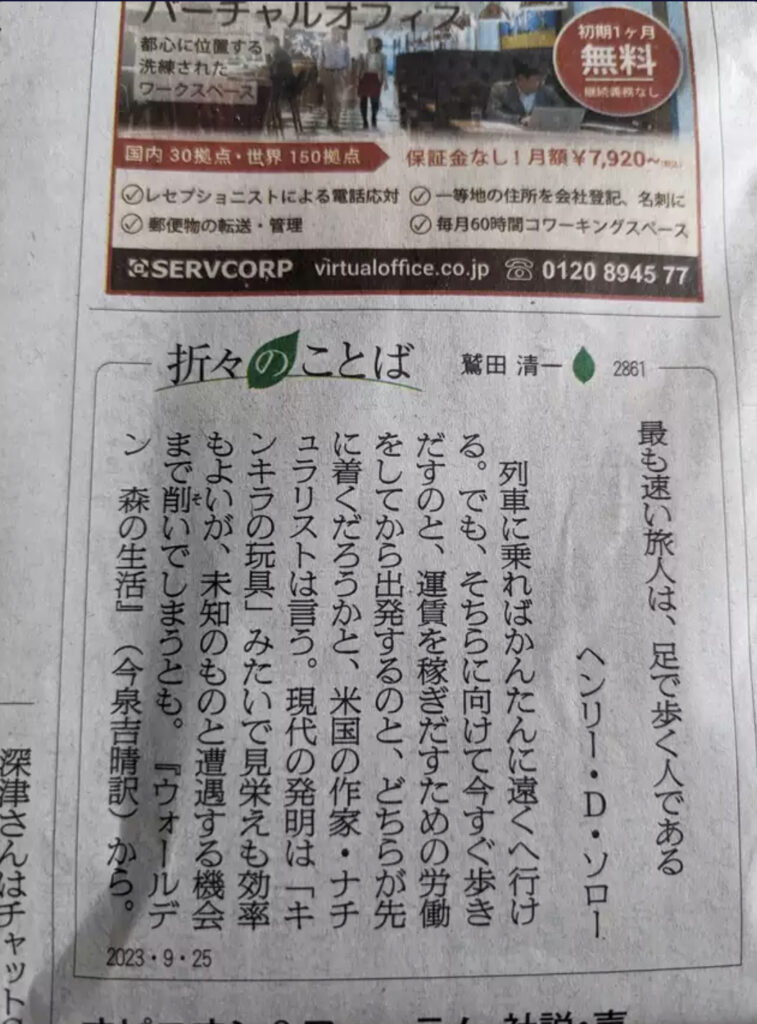 バーチャルオフィス
都心に位置する
洗練された
ワークスペース
初期1ヶ月
無料
継続義務なし
国内 30拠点・世界 150拠点
保証金なし!月額¥7,920~(税込)
レセプショニストによる電話応対
一等地の住所を会社登記、名刺に
郵便物の転送・管理
毎月60時間コワーキングスペース
SERVCORP virtualoffice.co.jp 0120 8945 77
折々のことば
鷲田 清一 2861
最も速い旅人は、足で歩く人である
ヘンリー・D・ソロー
列車に乗ればかんたんに遠くへ行け
る。でも、そちらに向けて今すぐ歩き
だすのと、運賃を稼ぎだすための労働
をしてから出発するのと、どちらが先
に着くだろうかと、米国の作家・ナチ
ュラリストは言う。現代の発明は「キ
ンキラの玩具」みたいで見栄えも効率
もよいが、未知のものと遭遇する機会
まで削(そ)いでしまうとも。『ウォールデ
ン 森の生活』(今泉吉晴訳)から。
2023・9・25
深津さんはチャット